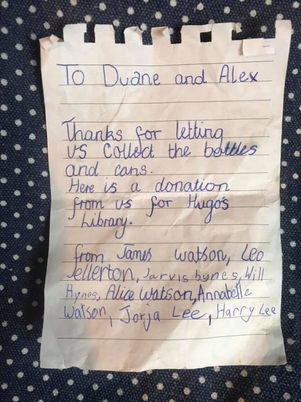 To Duane and Alex
Thanks for letting
us collect the bottles
and cans.
Here is a donation
from us for Hugo's
Library.
from James Watson, Leo
Jellerton, Jarvis bynes, Will
Hynes, Alice Watson, Annabelle
Watson, Jorja Lee, Harry Lee